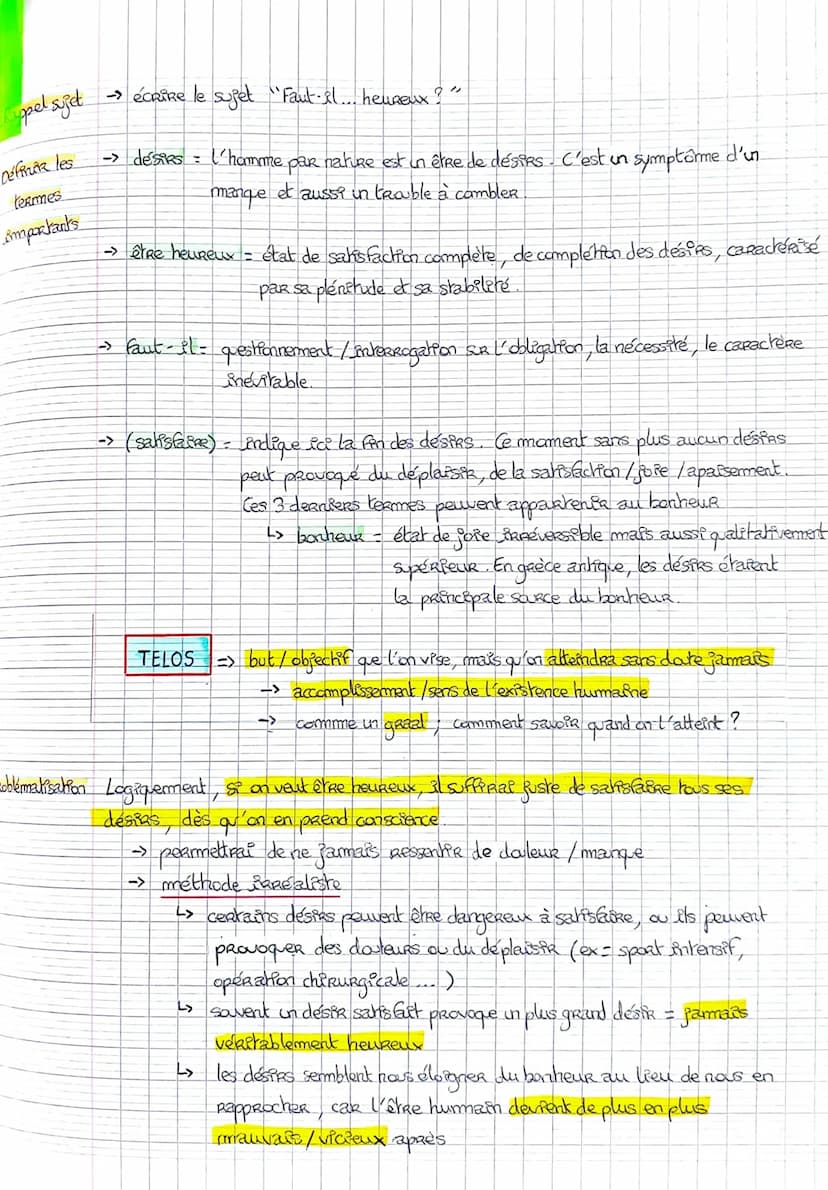 Rappel sujet → écrire le sujet "Faut-il... heureux ?"
Définir les → désirs = l'homme par nature est un être de désirs. C'est un symptôme d'un
termes manque et aussi un trouble à combler.
importants
→ être heureux = état de satisfaction complète, de complétion des désirs, caractérisé
par sa plénitude et sa stabilité.
→ faut-il = questionnement / interrogation sur l'obligation, la nécessité, le caractère
inévitable.
→ (satisfaire) = indique ici la fin des désirs. Ce moment sans plus aucun désirs
peut provoqué du déplaisir, de la satisfaction / joie / apaisement.
Ces 3 derniers termes peuvent appartenir au bonheur
↳ bonheur = état de joie irréversible mais aussi qualitativement
supérieur. En grèce antique, les désirs étaient
la principale source du bonheur.
TELOS => but / objectif que l'on vise, mais qu'on atteindra sans doute jamais
→ accomplissement / sens de l'existence humaine
→ comme un graal ; comment savoir quand on l'atteint ?
Problématisation Logiquement, si on veut être heureux, il suffirai juste de satisfaire tous ses
désirs, dès qu'on en prend conscience.
→ permettrai de ne jamais ressentir de douleur / manque
→ méthode irréaliste
↳ certains désirs peuvent être dangereux à satisfaire, ou ils peuvent
provoquer des douleurs ou du déplaisir (ex = sport intensif,
opération chirurgicale ...)
↳ souvent un désir satisfait provoque un plus grand désir = jamais
véritablement heureux
↳ les désirs semblent nous éloigner du bonheur au lieu de nous en
rapprocher, car l'être humain devient de plus en plus
mauvais / vicieux après